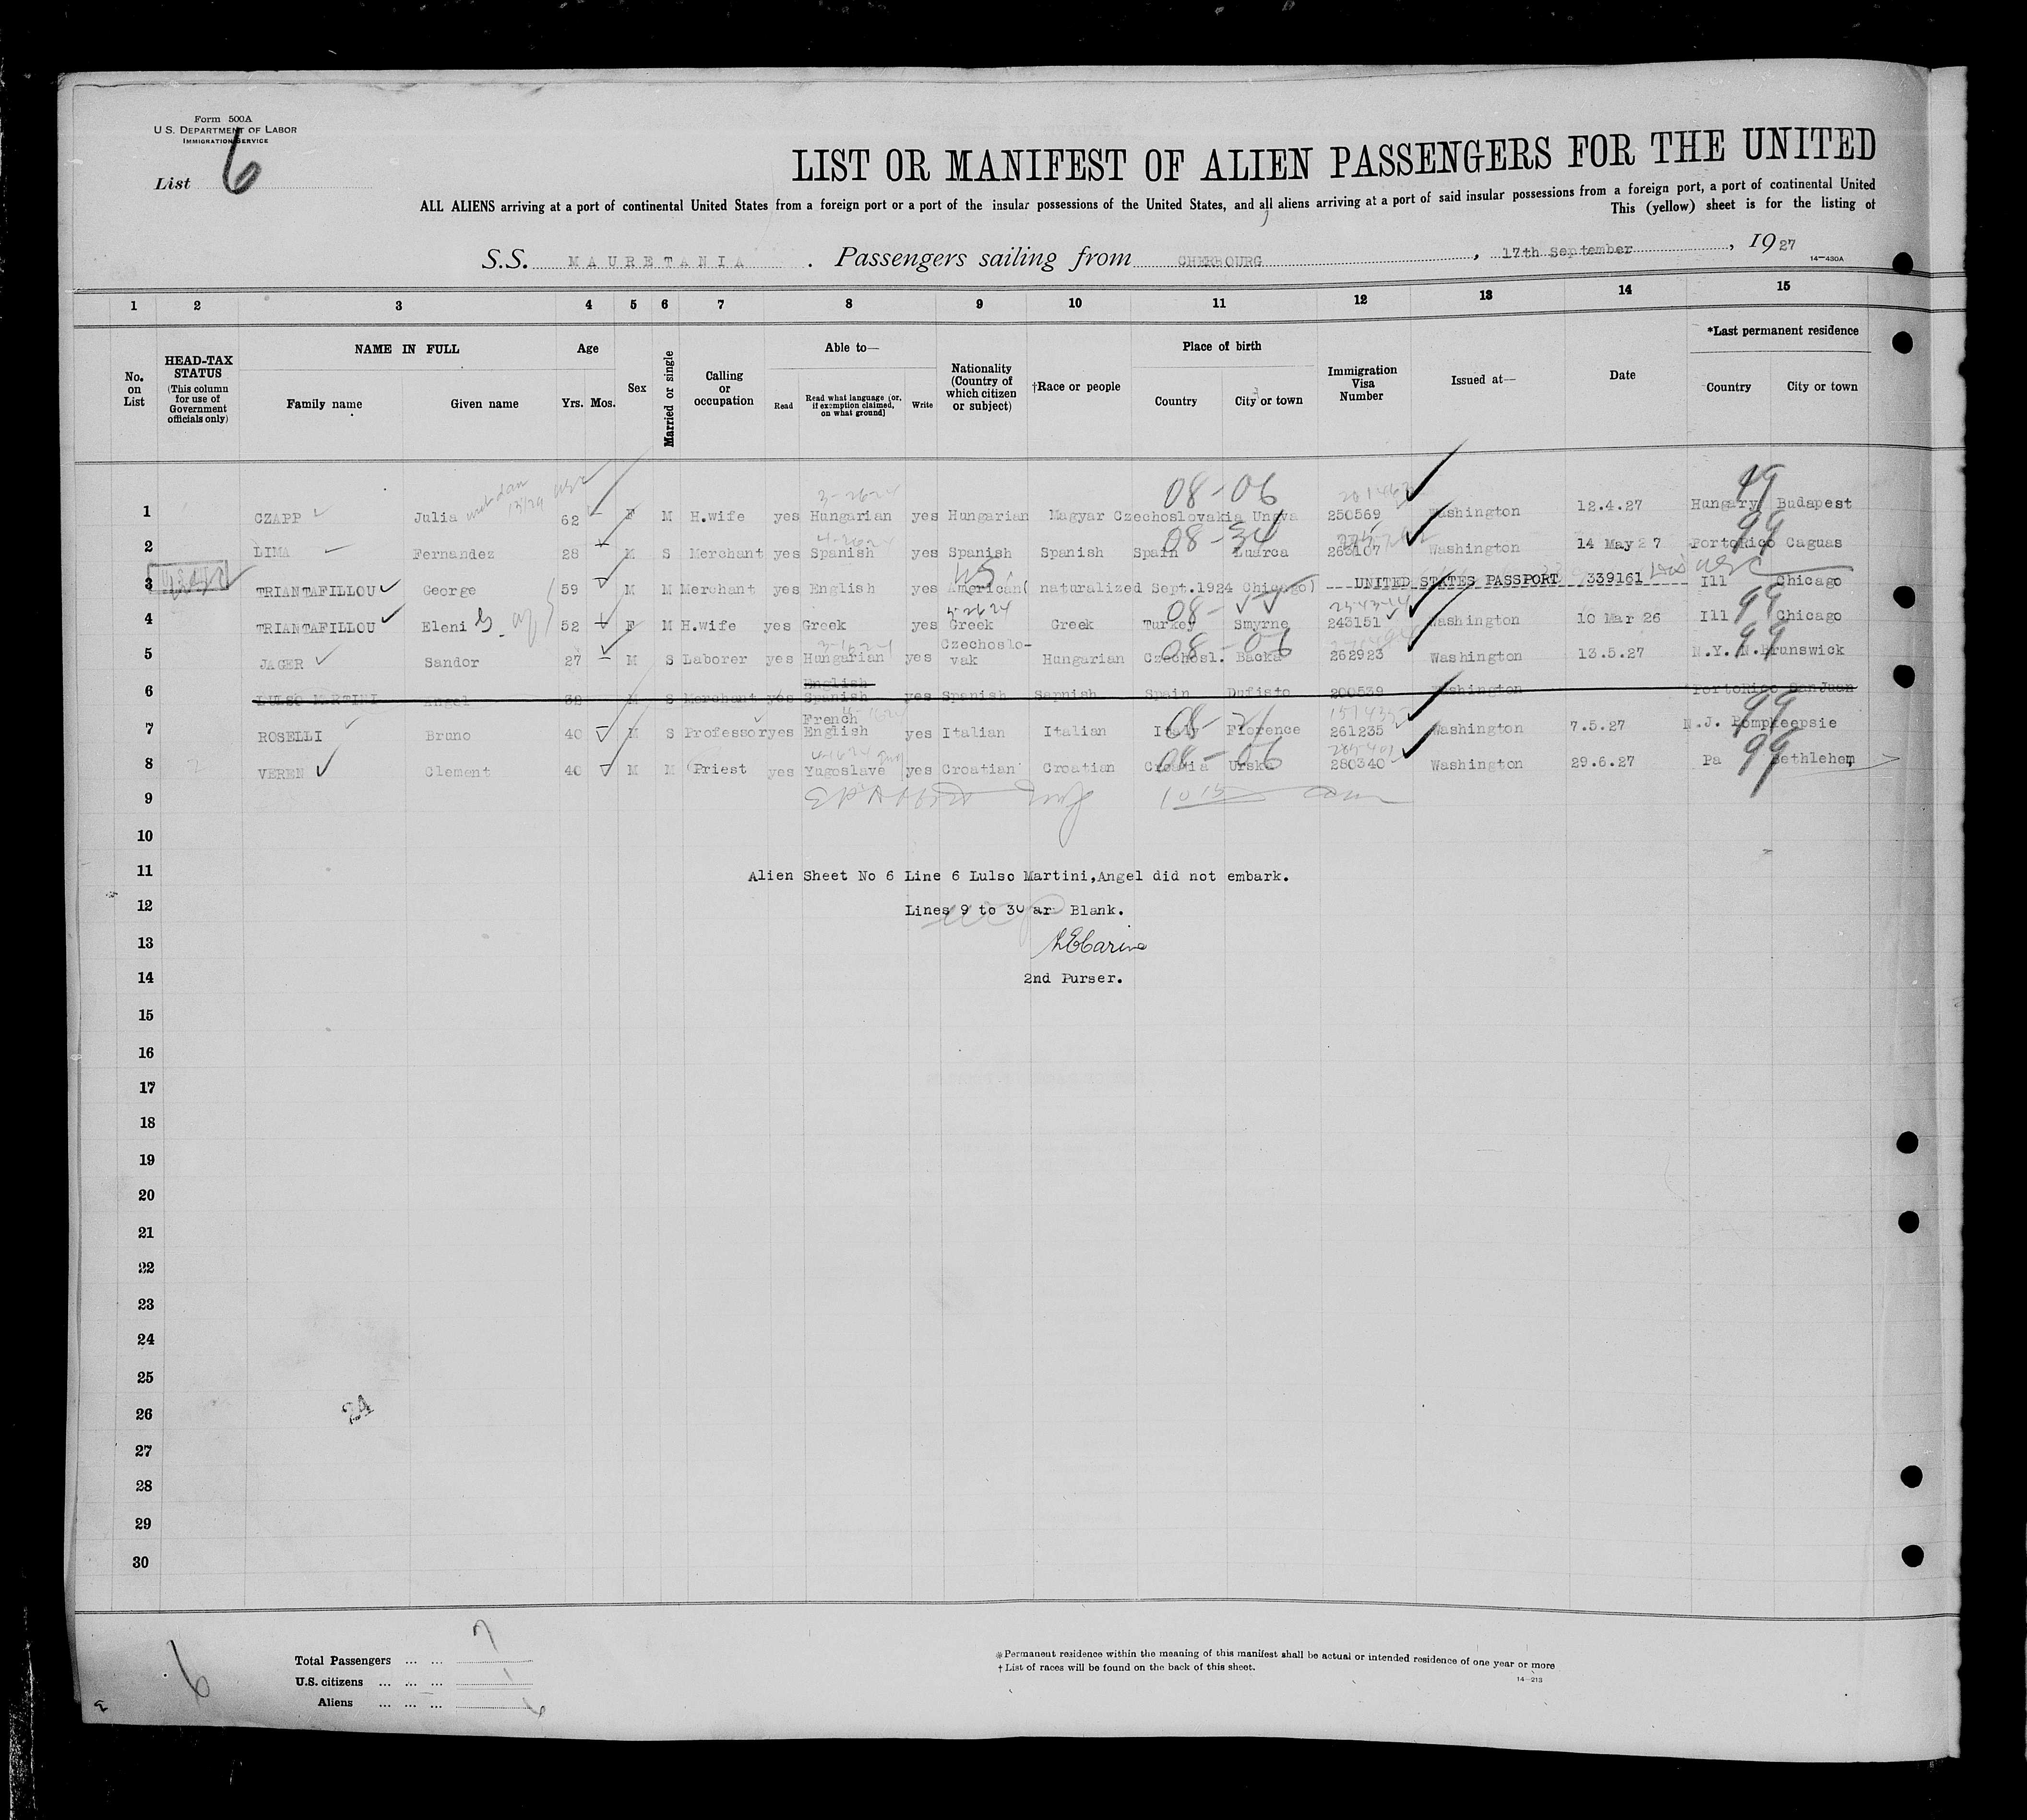 Form 500A
U.S. DEPARTMENT OF LABOR
IMMIGRATION SERVICE
List 6
LIST OR MANIFEST OF ALIEN PASSENGERS FOR THE UNITED
ALL ALIENS arriving at a port of continental United States from a foreign port or a port of the insular possessions of the United States, and all aliens arriving at a port of said insular possessions from a foreign port, a port of continental United
This (yellow) sheet is for the listing of
S.S. MAURETANIA. Passengers sailing from CHERBOURG, 17th September, 1927
14—430A
1 2 3 4 5 6 7 8 9 10 11 12 13 14 15
No. on List
HEAD-TAX STATUS (This column for use of Government officials only)
NAME IN FULL
Family name Given name
Age
Yrs. Mos.
Sex
Married or single
Calling or occupation
Able to—
Read Read what language (or, if exemption claimed, on what ground) Write
Nationality (Country of which citizen or subject)
†Race or people
Place of birth
Country City or town
Immigration Visa Number
Issued at—
Date
*Last permanent residence
Country City or town
08-06 49
1 CZAPP Julia 62 F M H.wife yes Hungarian yes Hungarian Magyar Czechoslovakia Ungva 250569 Washington 12.4.27 Hungary Budapest
08-34 99
2 LIMA Fernandez 28 M S Merchant yes Spanish yes Spanish Spanish Spain Luarca 263107 Washington 14 May 27 PortoRico Caguas
US
3 TRIANTAFILLOU George 59 M M Merchant yes English yes American( naturalized Sept.1924 Chicago) UNITED STATES PASSPORT 339161 Ill Chicago
5-26 24 08- 99
4 TRIANTAFILLOU Eleni 52 F M H.wife yes Greek yes Greek Greek Turkey Smyrne 243151 Washington 10 Mar 26 Ill Chicago
08-06 99
5 JAGER Sandor 27 M S Laborer yes Hungarian yes Czechoslo-vak Hungarian Czechosl. Backa 262923 Washington 13.5.27 N.Y. N.Brunswick
English
6 LULSO MARTINI Angel 38 M S Merchant yes Spanish yes Spanish Sapnish Spain Dufisto 200539 Washington PortoRico SanJuan
French 08-21 99
7 ROSELLI Bruno 40 M S Professor yes English yes Italian Italian Italy Florence 261235 Washington 7.5.27 N.J. Pompkeepsie
08-06 99
8 VEREN Clement 40 M M Priest yes Yugoslave yes Croatian Croatian Croatia Urska 280340 Washington 29.6.27 Pa Bethlehem
9
10
11 Alien Sheet No 6 Line 6 Lulso Martini,Angel did not embark.
12 Lines 9 to 30 ar Blank.
13
14 2nd Purser.
15
16
17
18
19
20
21
22
23
24
25
26 24
27
28
29
30
6
Total Passengers ... ... 7
U.S. citizens ... ... ... 1
Aliens ... ... ... 6
*Permanent residence within the meaning of this manifest shall be actual or intended residence of one year or more
†List of races will be found on the back of this sheet.
14—213